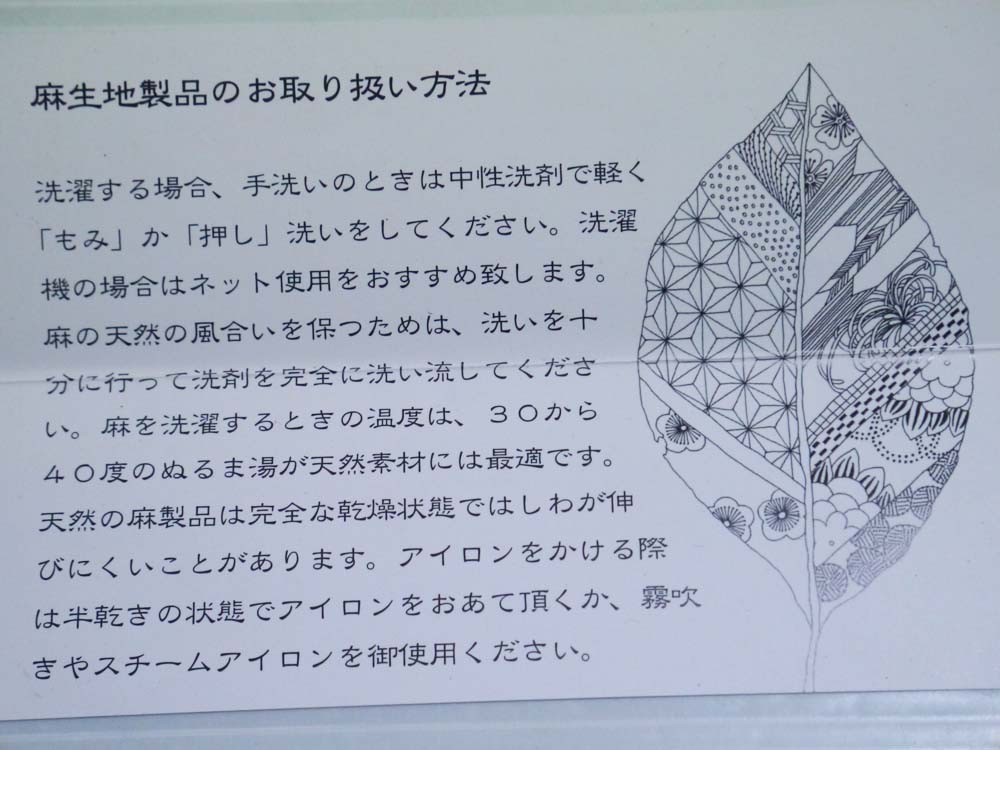 麻生地製品のお取り扱い方法
洗濯する場合、手洗いのときは中性洗剤で軽く
「もみ」か「押し」洗いをしてください。洗濯
機の場合はネット使用をおすすめ致します。
麻の天然の風合いを保つためは、洗いを十
分に行って洗剤を完全に洗い流してくださ
い。麻を洗濯するときの温度は、３０から
４０度のぬるま湯が天然素材には最適です。
天然の麻製品は完全な乾燥状態ではしわが伸
びにくいことがあります。アイロンをかける際
は半乾きの状態でアイロンをおあて頂くか、霧吹
きやスチームアイロンを御使用ください。